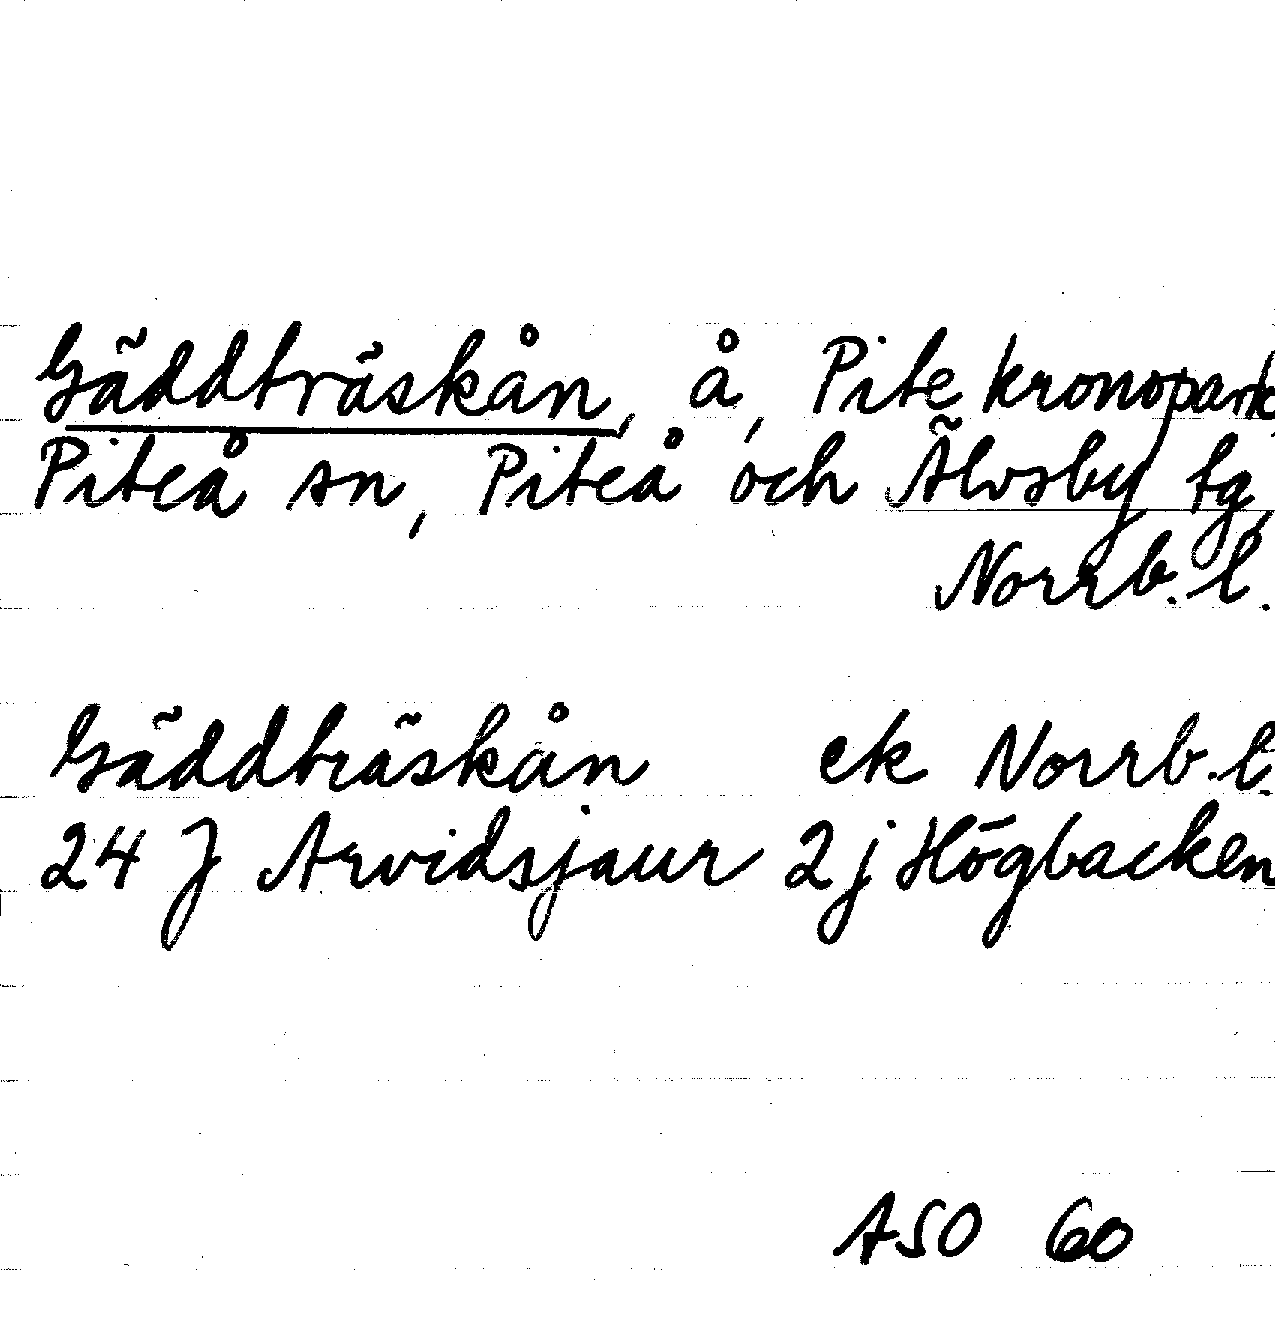 Gäddträskån, å, Pite kronopark
Piteå sn, Piteå och Älvsby tg,
Norrb. l.
Gäddträskån ek Norrb. l.
24 J Arvidsjaur 2 j Högbacken
ASO 60